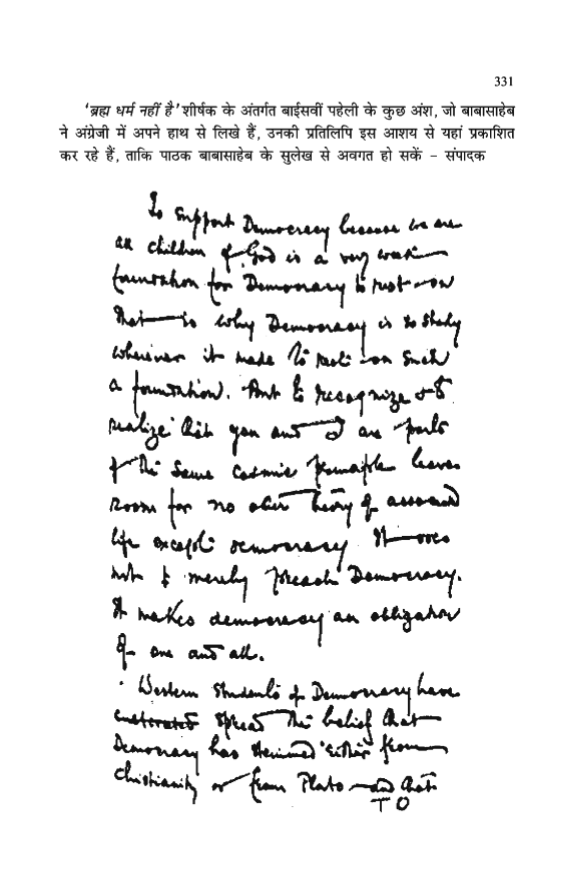 331
'ब्रह्म धर्म नहीं है' शीर्षक के अंतर्गत बाईसवीं पहेली के कुछ अंश, जो बाबासाहेब
ने अंग्रेजी में अपने हाथ से लिखे हैं, उनकी प्रतिलिपि इस आशय से यहां प्रकाशित
कर रहे हैं, ताकि पाठक बाबासाहेब के सुलेख से अवगत हो सकें – संपादक
To support Democracy because we are
all children of God is a very weak
foundation for Democracy to rest on
That is why Democracy is so shaky
wherever it made to rest on such
a foundation. But to recognize & to
realize that you and I are parts
of the same cosmic principle leaves
room for no other theory of associated
life except democracy. It does
not merely preach Democracy.
It makes democracy an obligation
of one and all.
Western students of Democracy have
spread the belief that
Democracy has stemmed either from
Christianity or from Plato and that
T O